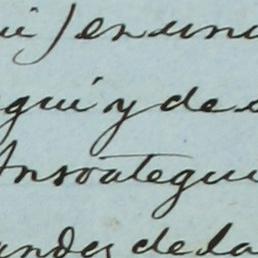 ui) en una
egui y de
Ansoategui
andes de la